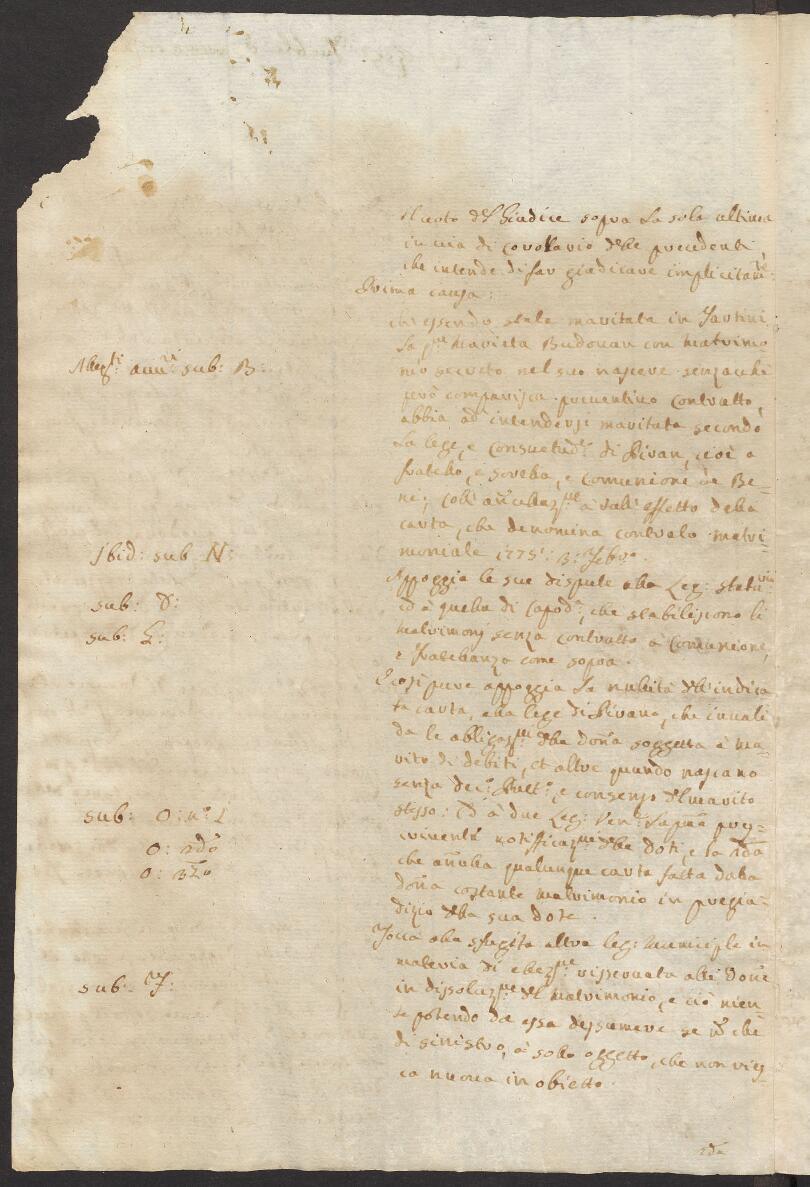 il voto del Giudice sopra la sola ultima
in via di corollario delle precedenti,
che intende di far giudicare implicitam.te
Prima causa:
che essendo stata maritata in Jartini
la Marieta Budovan con matrimo-
nio secreto nel suo nascere senzacchè
però comparisca preventivo contratto,
Allegti annti sub: B:
abbia ad intendersi maritata secondo
la lege, e consuetude di Piran, cioè a
fratello, e sorella, e comunione de Be-
ni; coll' annullazne a tall' effetto della
carta, che denomina contrato matri-
Ibid: sub N:
moniale 1775: 3: Febro.
Appoggia le sue dispute alla Leg: statu
sub: D:
id a quella di Capod:, che stabiliscono li
sub: E:
matrimonj senza contratto a Comunione,
e Fratellanza come sopra.
E così pure appoggia la nullità dell' indica-
ta carta, alla lege di Pirano, che invali-
da le obbligazni della dona soggetta a ma-
rito di debiti, et altre quando nascano
senza e consenso del marito
sub: O: no 1
stesso: Ed a due Leg: Ven: la pma pres-
O: 2do
crivente notifficazne delle doti, e la 2da
O: 3zo
che annulla qualunque carta fatta dalla
dona costante matrimonio in pregiu-
dizio della sua dote.
Tocca alla sfugita altra leg: Municiple in
sub: F:
materia di elezne risservata alle done
in dissoluzne del matrimonio, e ciò nien-
te potendo da essa dessumere se non che
di sinistro, a solo oggetto, che non ries-
ca nuova in obietto.
2da